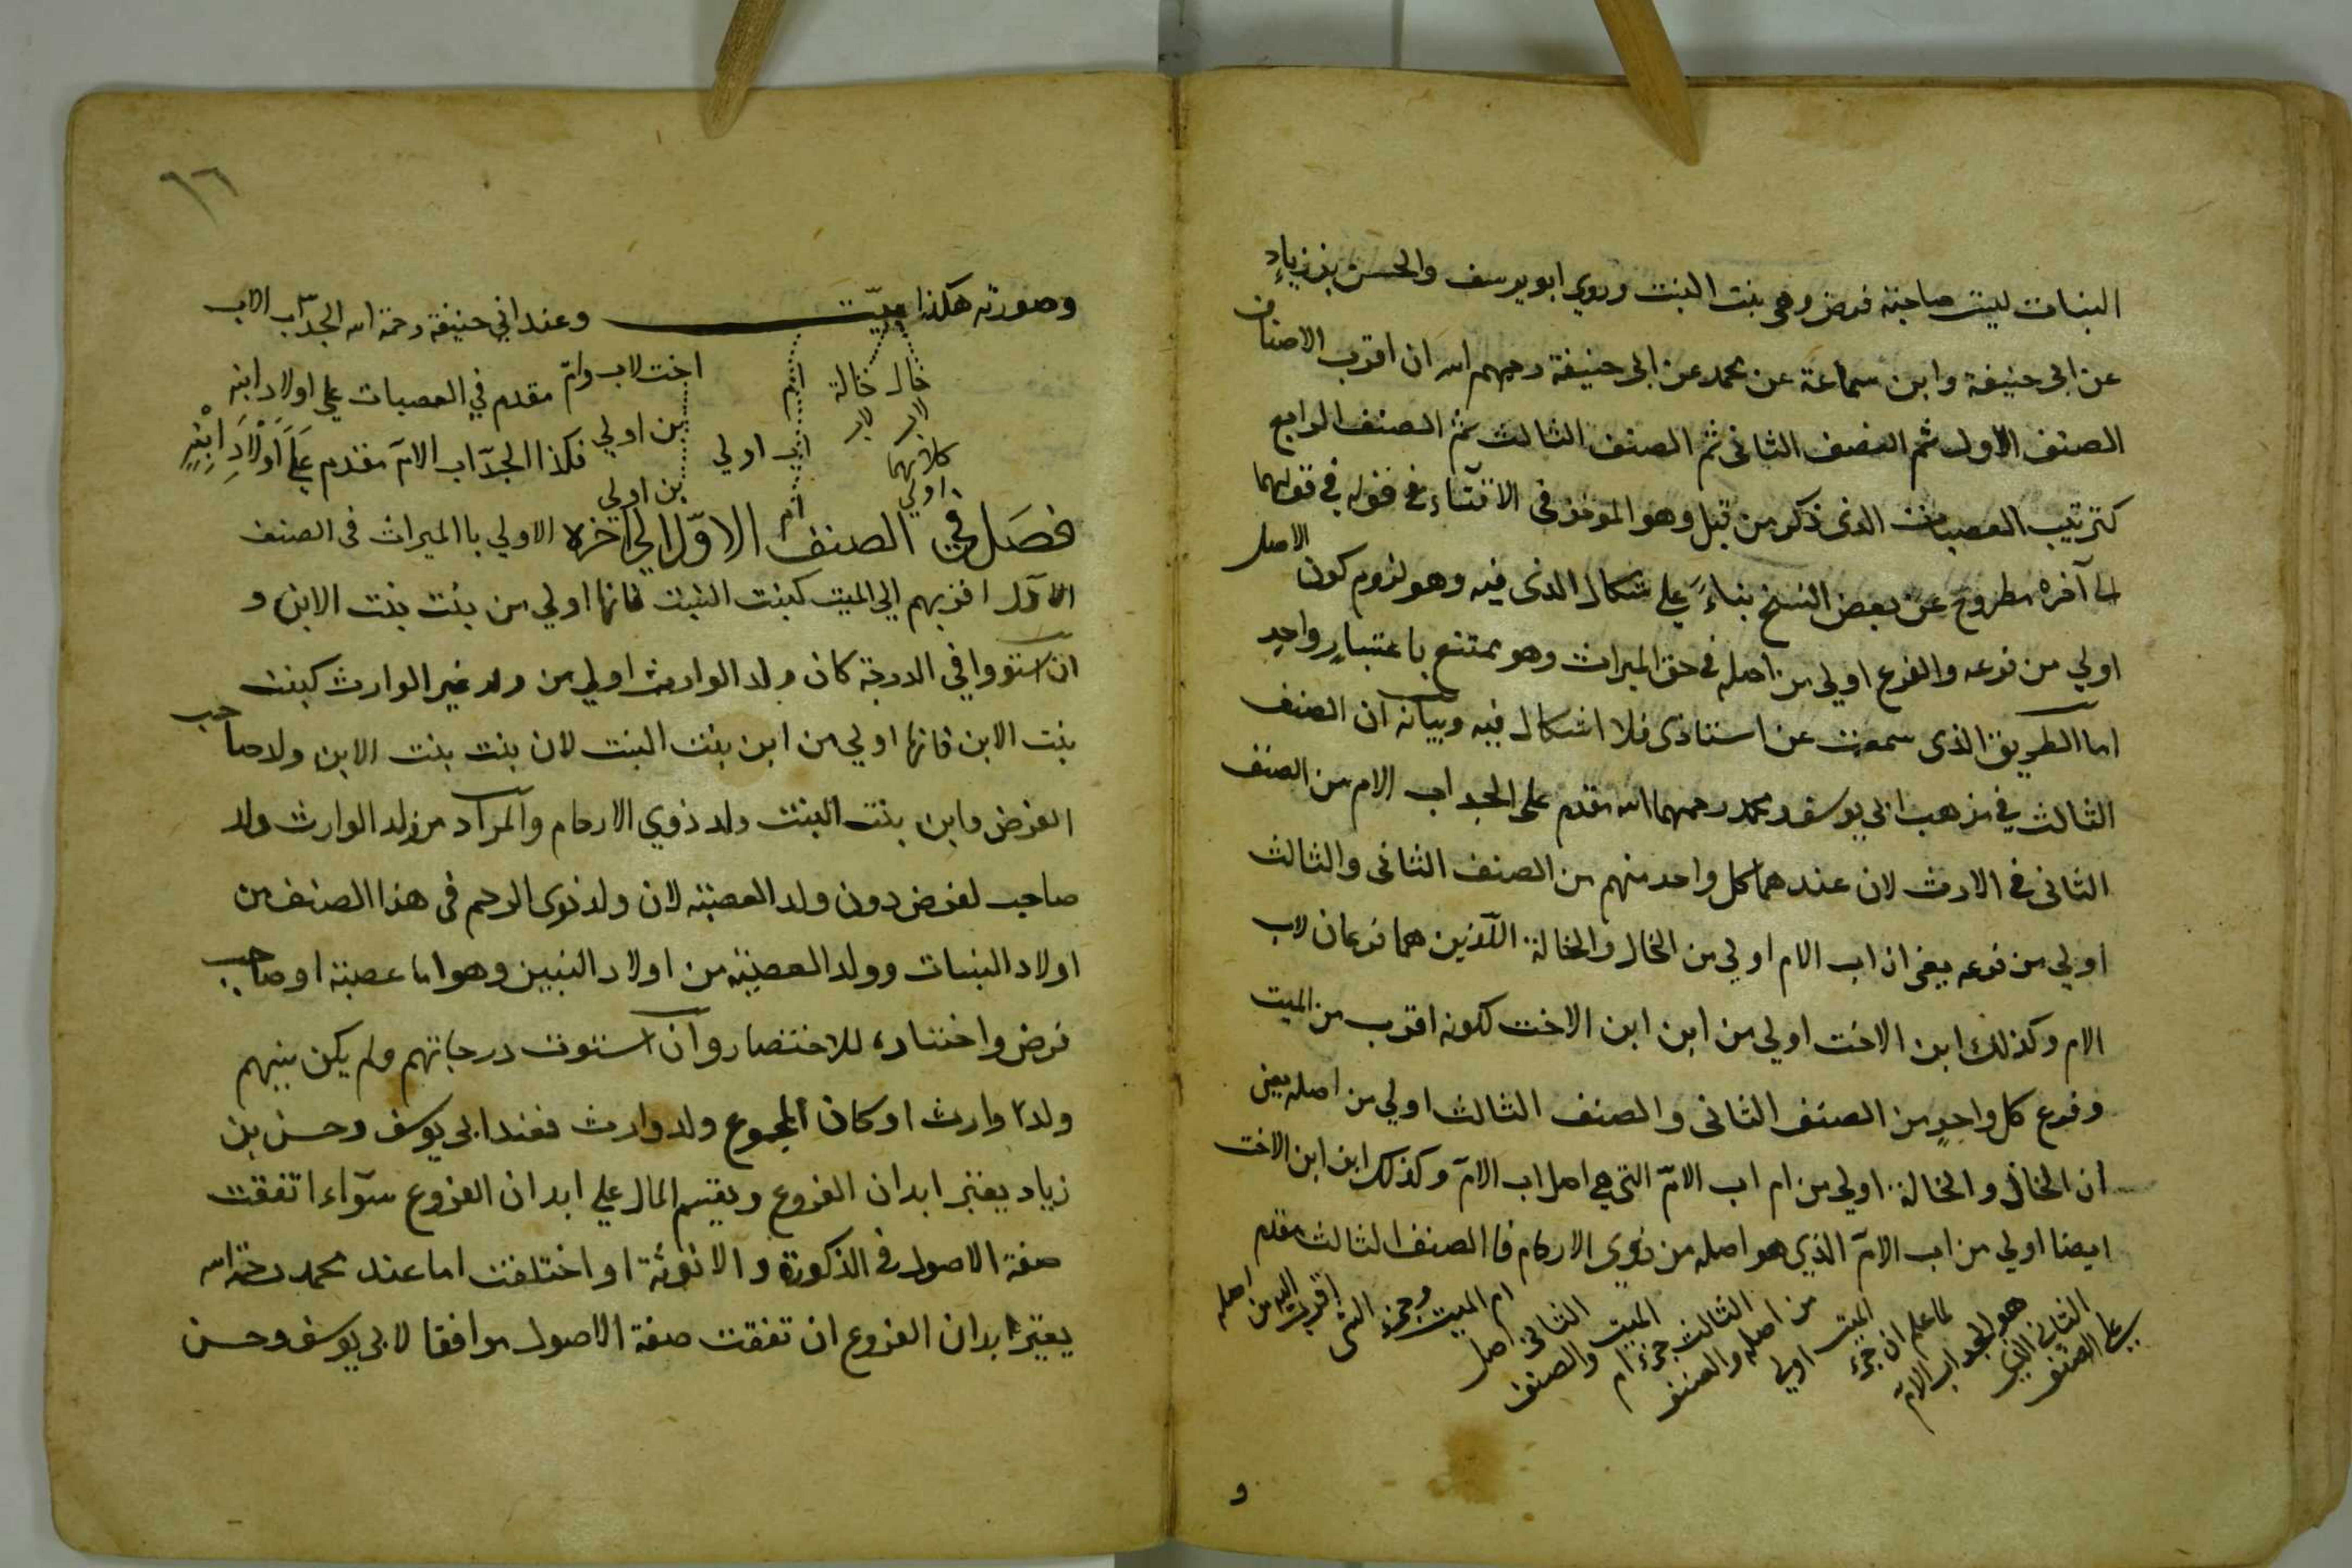 البنات ليست صاحبة فرض وهي بنت البنت وروي ابو يوسف والحسن بن زياد
عن ابى حنيفة وابن سماعة عن محمد عن ابى حنيفة رحمهم الله ان اقرب الاصناف
الصنف الاول ثم الصنف الثانى ثم الصنف الثالث ثم الصنف الرابع
كترتيب العصبات الذى ذكر من قبل وهو المأخوذ فى الافتاء فى قوله فى قولهما
الى آخره مطروح عن بعض النسخ بناءً على اشكال الذى فيه وهو لزوم كون الاصل
اولي من فرعه والفرع اولي من اصله فى حق الميراث وهو ممتنع باعتبار واحد
اما الطريق الذى سمعت عن استاذى فلا اشكال فيه وبيانه ان الصنف
الثالث في مذهب ابي يوسف ومحمد رحمهما الله مقدم على الجد اب الام من الصنف
الثانى فى الارث لان عندهما كل واحد منهم من الصنف الثانى والثالث
اولي من فرعه يعنى ان اب الام اولي من الخال والخالة اللذين هما فرعان لاب
الام وكذلك ابن الاخت اولي من ابن ابن الاخت لكونه اقرب من الميت
وفرع كل واحدٍ من الصنف الثانى والصنف الثالث اولي من اصله يعنى
ان الخال والخالة اولي من ام اب الامّ التى هي اصل اب الامّ وكذلك ابن ابن الاخت
ايضا اولي من اب الامّ الذي هو اصله من ذوي الارحام فا الصنف الثالث مقدم
علي الصنف
الثاني الذي
هو الجد اب الامّ
لما علم ان جزء
الميت اولي
من اصله والصنف
الثالث جزء ام
الميت والصنف
الثانى اصل
ام الميت وجزء الشى
اقرب اليه من اصله
و
٩٦
وصورته هكذا ميّت وعند ابي حنيفة رحمة الله الجدّ اب الاب
خال خالة ام اخت لاب وامّ مقدم في العصبات علي اولاد ابنه
لاب لاب
كلاهما اولي اب اولي بن اولي فكذا الجدّ اب الامّ مقدم عَلَى اَوْلَادِ ابْنِهِ
ام بن اولي
فصَل في الصنف الاوّل الي آخره الاولي باالميراث فى الصنف
الاوّل اقربهم الي الميت كبنت البنت فانها اولي من بنت بنت الابن و
ان استووا في الدرجة كان ولد الوارث اولي من ولد غير الوارث كبنت
بنت الابن فانها اولي من ابن بنت البنت لان بنت بنت الابن ولد صاحب
الفرض وابن بنت البنت ولد ذوي الارحام والمراد من ولد الوارث ولد
صاحب لفرض دون ولد العصبة لان ولد ذوى الرحم فى هذا الصنف من
اولاد البنات وولد العصبة من اولاد البنين وهو اما عصبة او صاحب
فرض واختاره للاختصار وان استوت درجاتهم ولم يكن بينهم
ولد وارث او كان المجموع ولد وارث فعند ابى يوسف وحسن بن
زياد يعتبر ابدان الفروع ويقسم المال علي ابدان الفروع سوآء اتفقت
صفة الاصول فى الذكورة والانوثة او اختلفت اما عند محمد رحمة الله
يعتبر ابدان الفروع ان تفقت صفة الاصول موافقا لابى يوسف وحسن